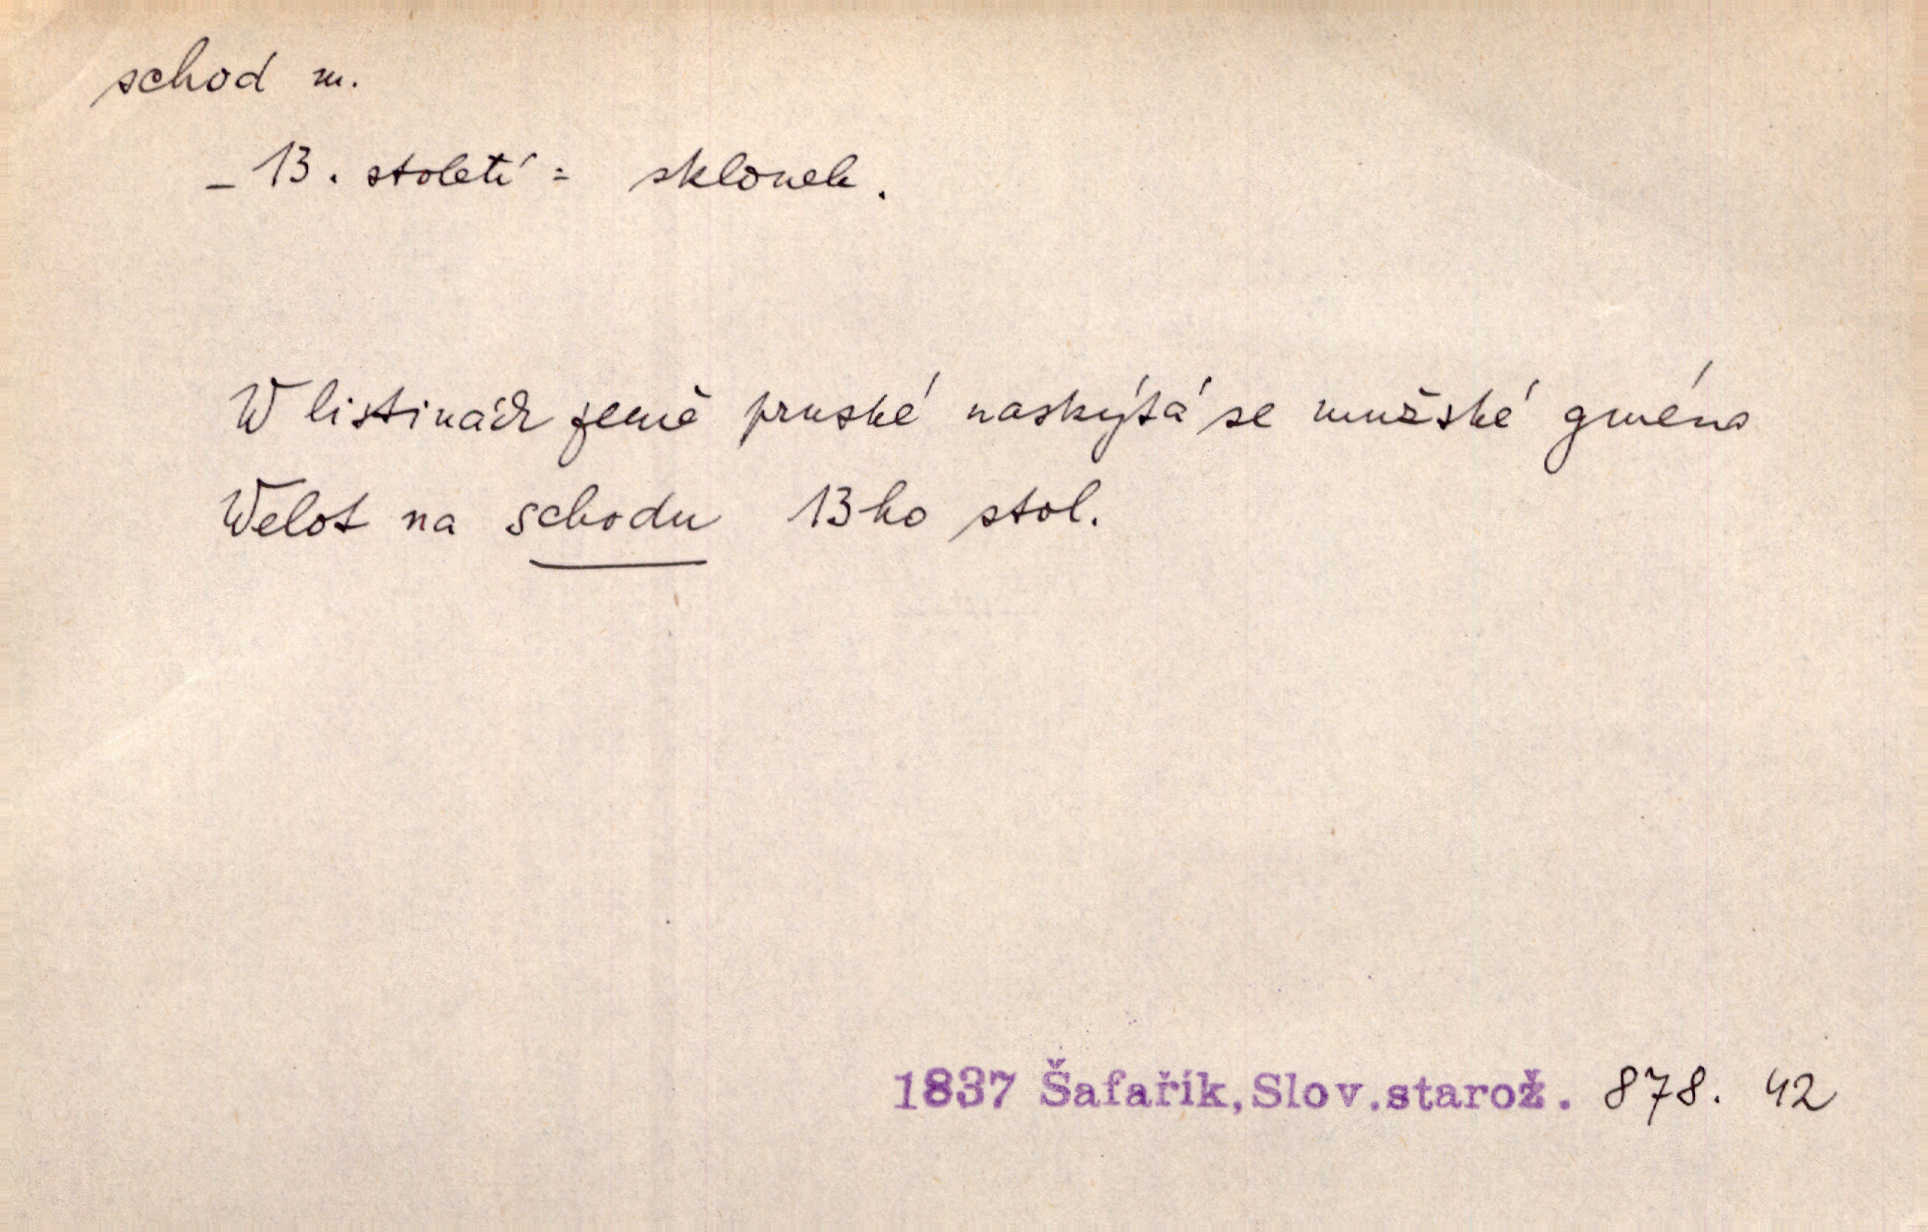 schod m.
– 13. století = sklonek.
W listinách země pruské naskýtá se mužské gméno
Welot na schodu 13ho stol.
1837 Šafařík, Slov. starož. 878. 42